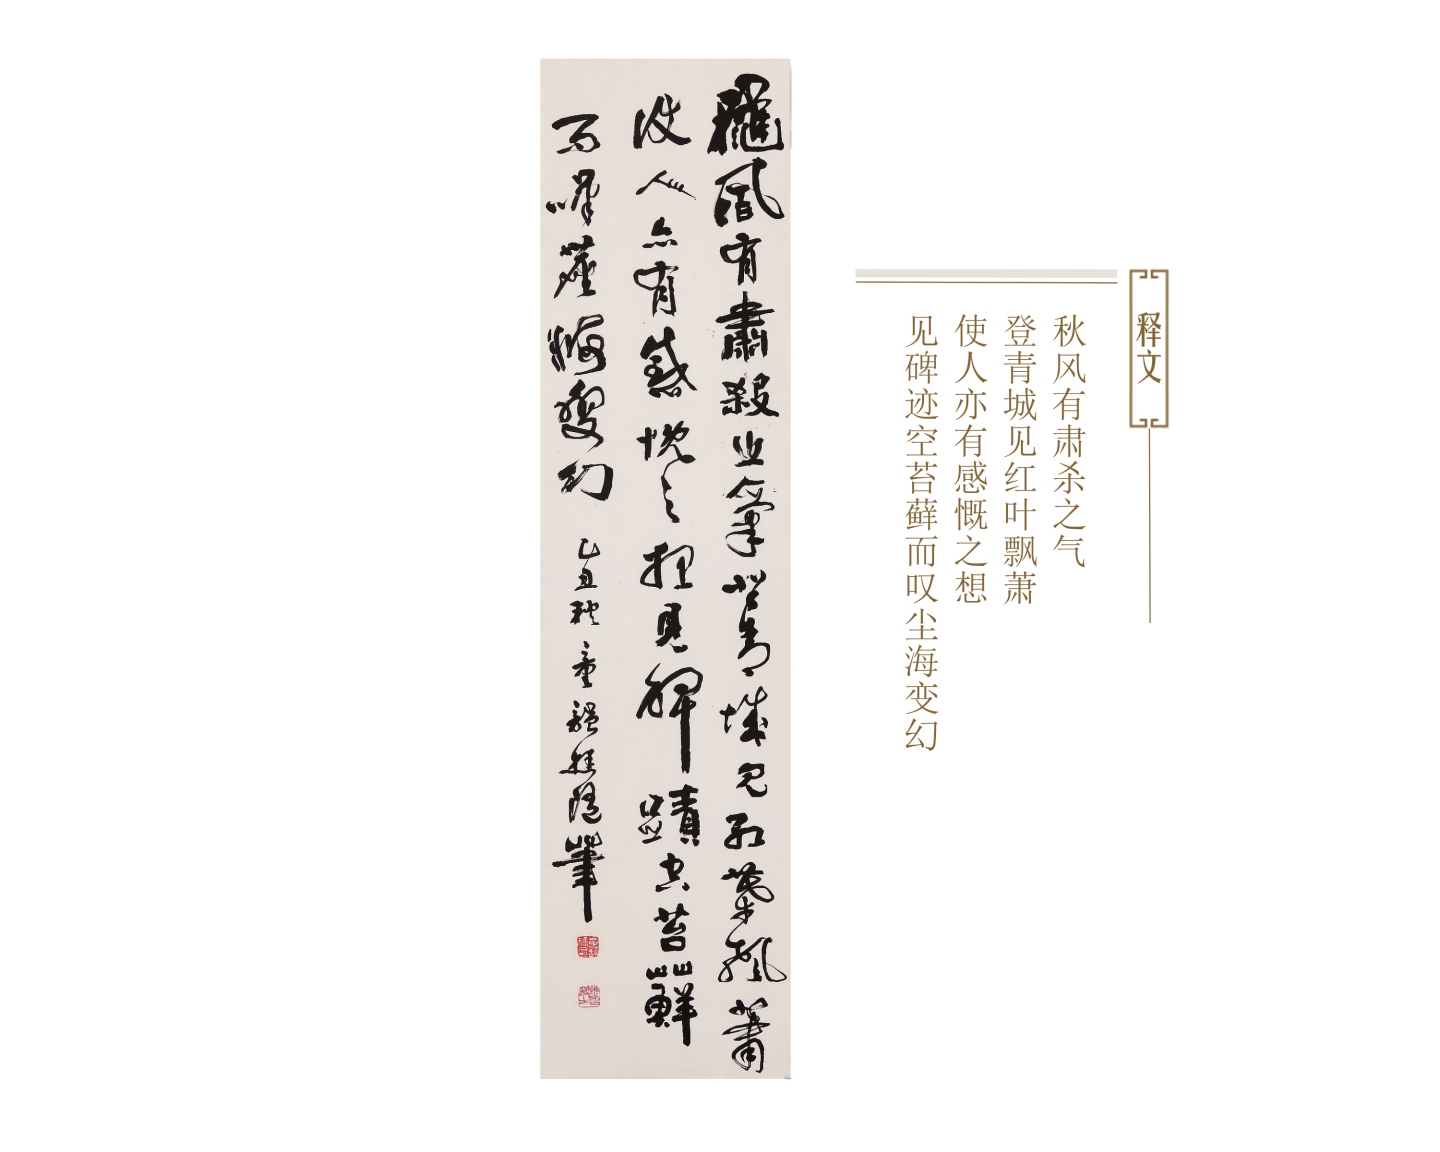 龝風有肅殺之氣登青城見紅葉飄蕭
使人亦有感慨之想見碑蹟空苔蘚
而嘆塵海變幻
释文
秋风有肃杀之气
登青城见红叶飘萧
使人亦有感慨之想
见碑迹空苔藓而叹尘海变幻